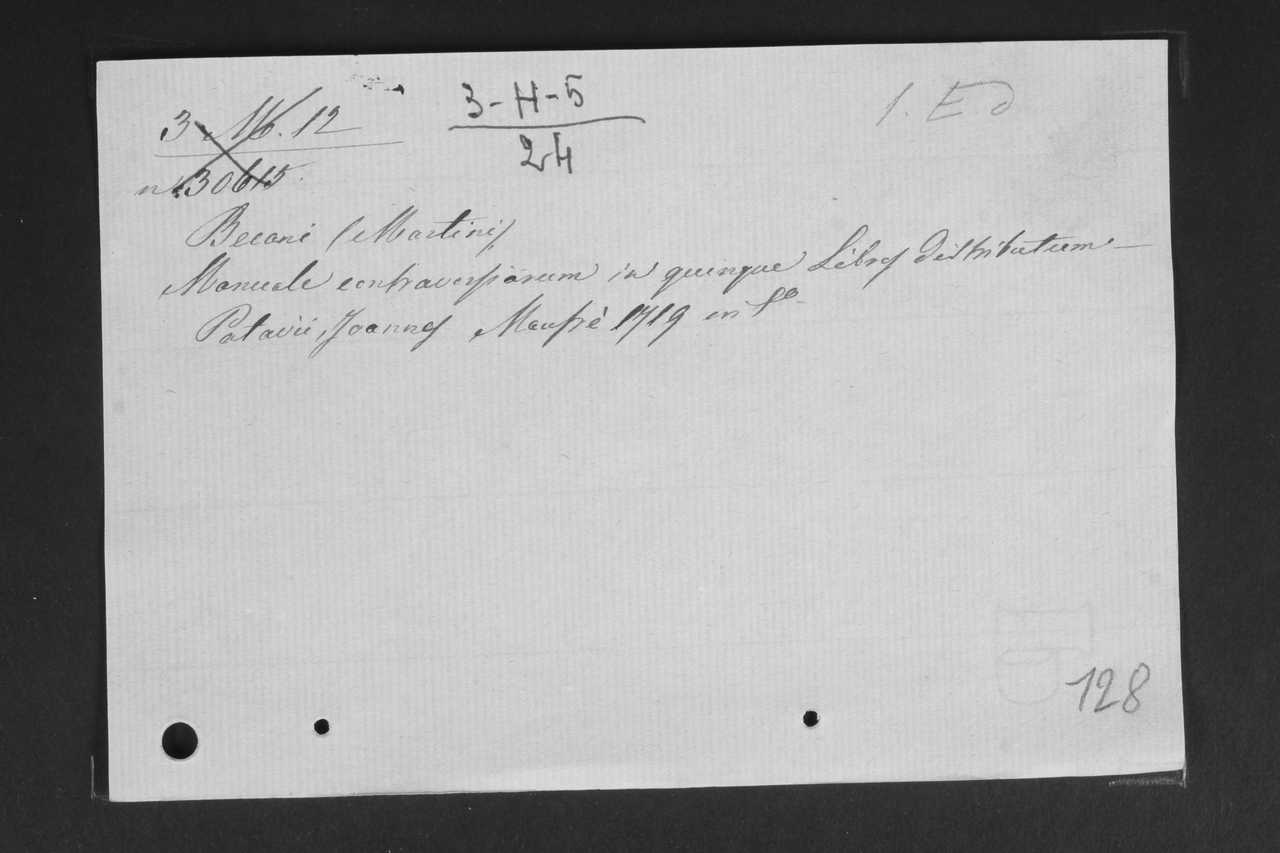 3-H-5
1. Ed
24
3 M. 12
n. 30615
Becani (Martini)
Manuale contraversiarum in quinque Libros distributum
Patavii, Joannes Manfrè 1719 in fº
128